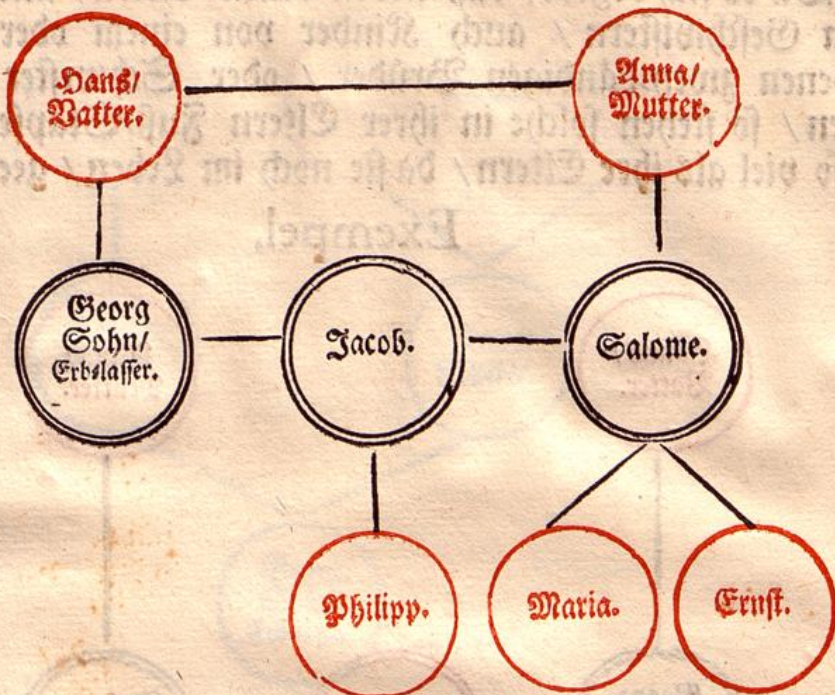 Hans/
Vatter.
Anna/
Mutter.
Georg
Sohn/
Erb⸗laſſer.
Jacob.
Salome.
Philipp.
Maria.
Ernſt.